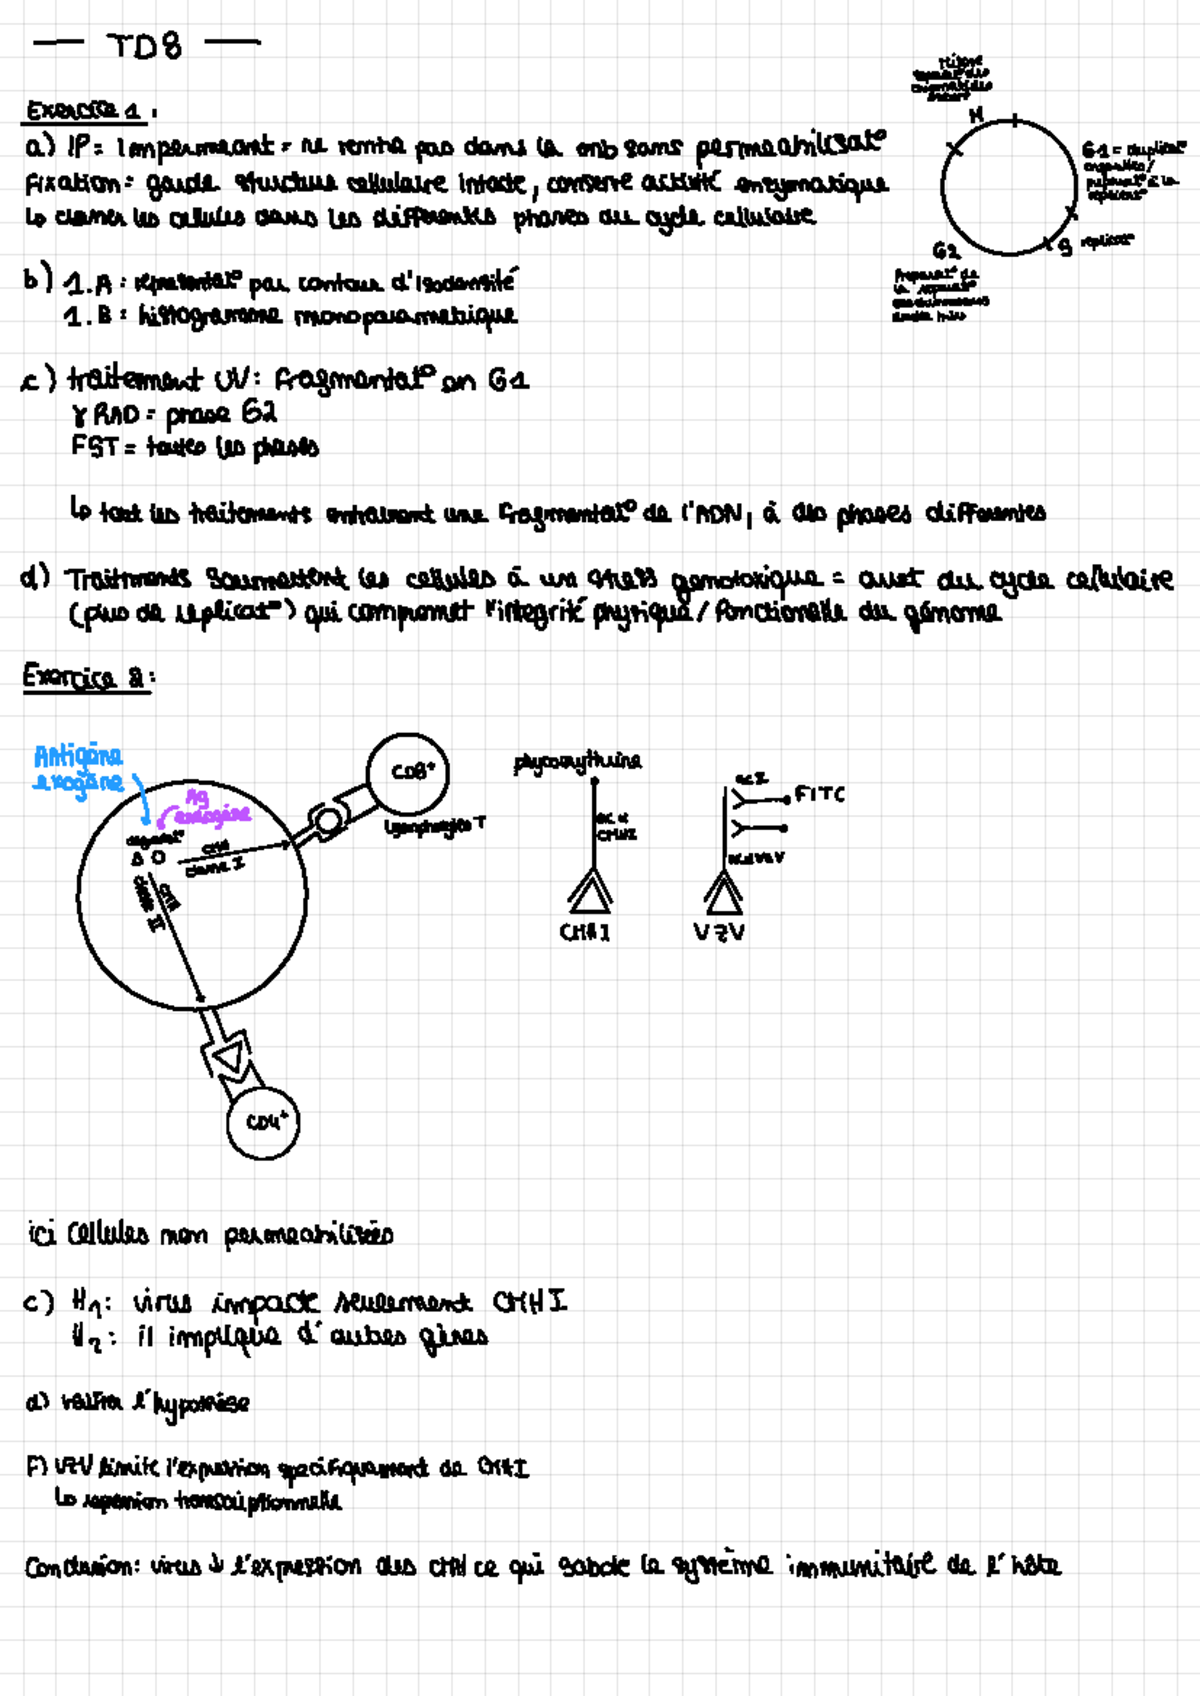 — TD8 —
Exercice 1 :
a) IP = Impermeant = ne rentre pas dans la mb sans permeabilisat°
Fixation = garde structure cellulaire intacte, conserve activité enzymatique
↳ classer les cellules dans les différentes phases du cycle cellulaire
Mitose
M
G1 = duplicat°
organites/
préparat° à la
replicat°
S replicat°
G2
Préparat° de
la
b) 1.A : représentat° par contour d'isodensité
1.B : histogramme monoparametrique
c) traitement UV : fragmentat° en G1
γ RAD = phase G2
FST = toutes les phases
↳ tout les traitements entrainent une fragmentat° de l'ADN, à des phases differentes
d) Traitments soumettent les cellules à un stress genotoxique = arret du cycle cellulaire
(plus de replicat°) qui compromet l'integrité physique / fonctionelle du génome
Exercice 2 :
Antigène
exogène
Ag
endogène
degradat°
CMH
classe I
CMH
classe II
CD8⁺
lymphocytes T
CD4⁺
phycoerythrine
CMHI
CMH I
FITC
VZV
ici cellules non permeabilisées
c) H1 : virus impacte seulement CMH I
H2 : il implique d'autres gènes
d) vérifier l'hypothèse
F) VZV limite l'expression specifiquement de CMH I
↳ repression transcriptionnelle
Conclusion : virus ↓ l'expression des CMH ce qui sabote le système immunitaire de l'hôte